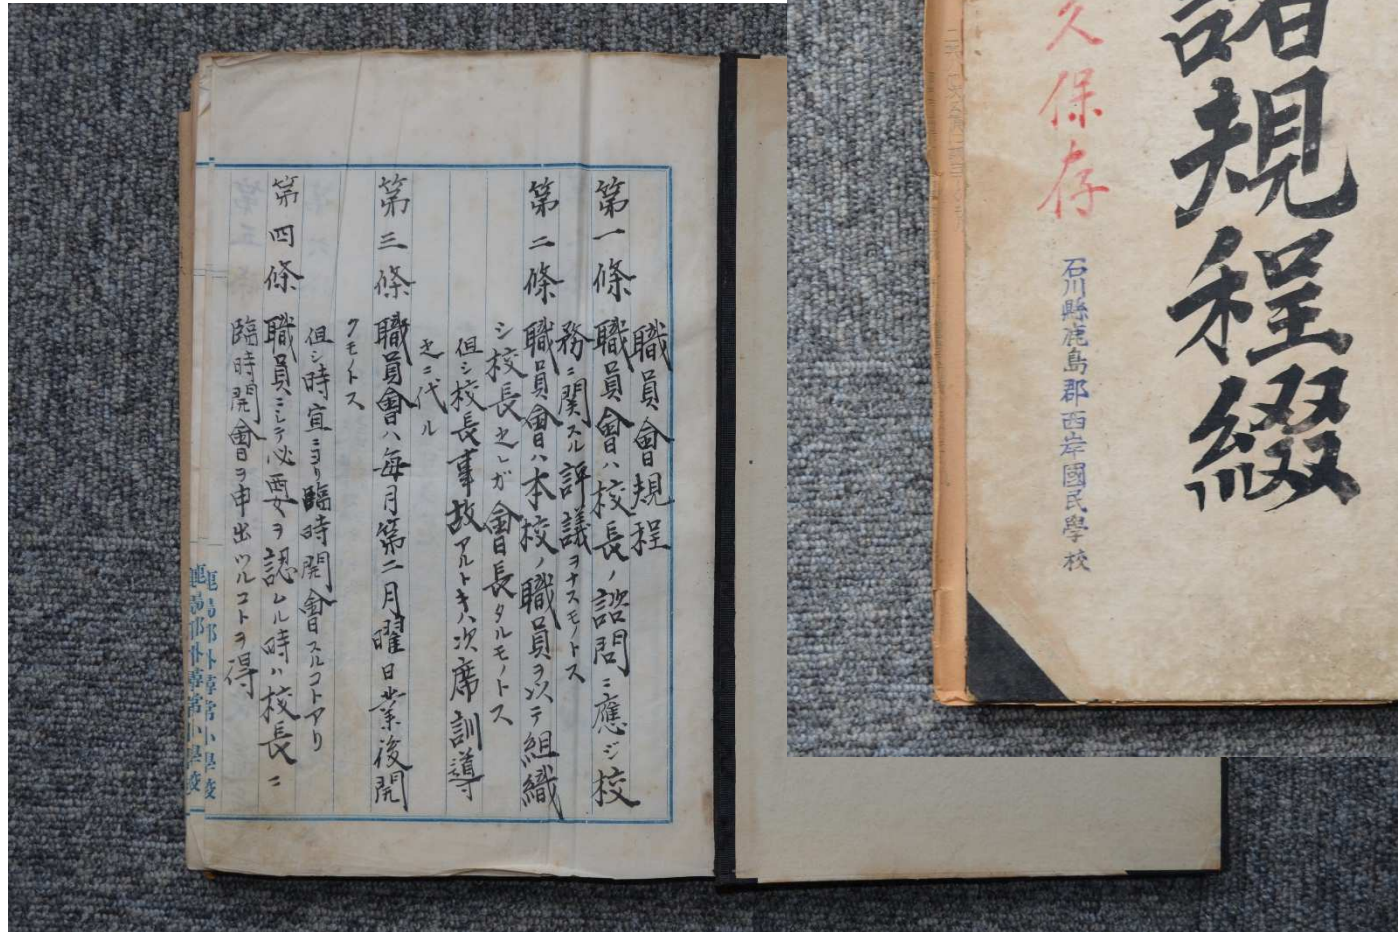 職員會規程
第一條 職員會ハ校長ノ諮問ニ應ジ校
務ニ関スル評議ヲナスモノトス
第二條 職員會ハ本校ノ職員ヲ以テ組織
シ校長之レガ會長タルモノトス
但シ校長事故アルトキハ次席訓導
之ニ代ル
第三條 職員會ハ毎月第二月曜日業後開
クモノトス
但シ時宜ニヨリ臨時開會スルコトアリ
第四條 職員ニシテ必要ヲ認ムル時ハ校長ニ
臨時開會ヲ申出ツルコトヲ得
諸規程綴
久保存
石川縣鹿島郡西岸國民學校